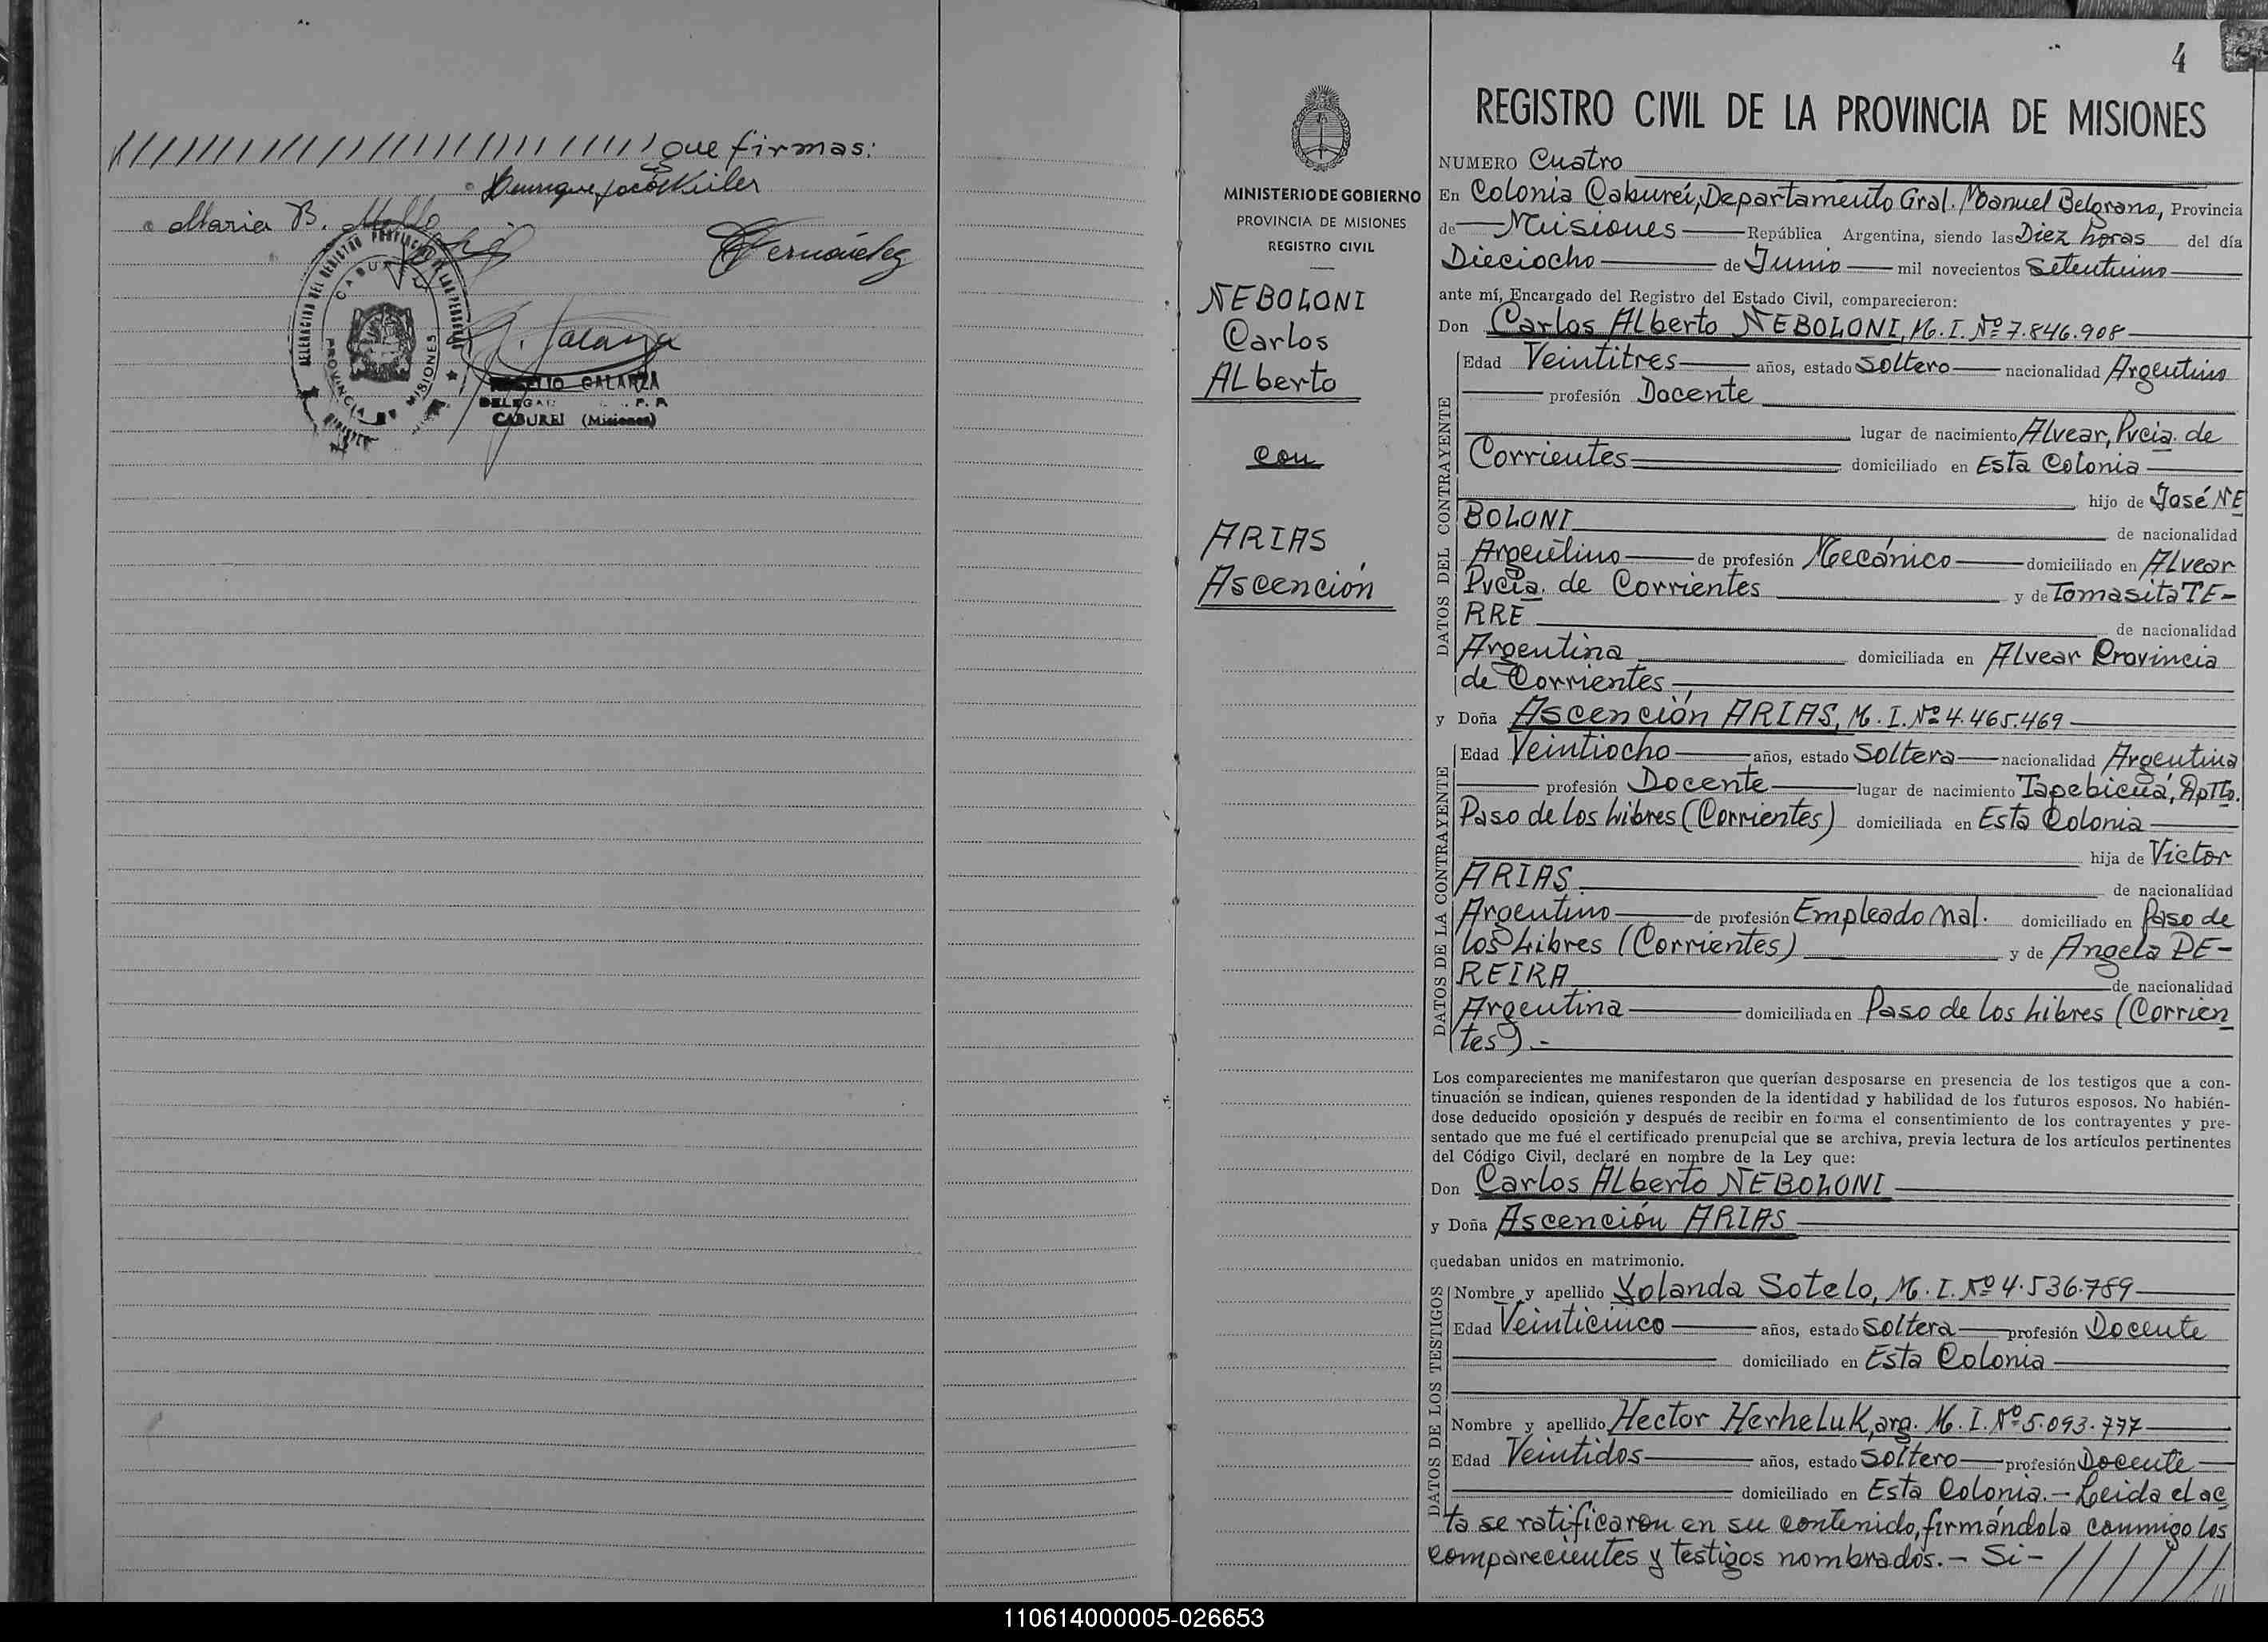 que firmas:
Maria B. Mello
Fernández
DELEGACION DEL REGISTRO PROVINCIAL DE LAS PERSONAS
CABUREI
PROVINCIA DE MISIONES
R. Galarza
ROGELIO GALARZA
CABUREI (Misiones)
MINISTERIO DE GOBIERNO
PROVINCIA DE MISIONES
REGISTRO CIVIL
NEBOLONI
Carlos
Alberto
con
ARIAS
Ascención
4
REGISTRO CIVIL DE LA PROVINCIA DE MISIONES
NUMERO Cuatro
En Colonia Caburei, Departamento Gral. Manuel Belgrano, Provincia
de Misiones República Argentina, siendo las Diez horas del día
Dieciocho de Junio mil novecientos Setentiuno
ante mí, Encargado del Registro del Estado Civil, comparecieron:
Don Carlos Alberto NEBOLONI, M. I. Nº 7.846.908
DATOS DEL CONTRAYENTE
Edad Veintitres años, estado Soltero nacionalidad Argentino
profesión Docente
lugar de nacimiento Alvear, Pvcia. de
Corrientes domiciliado en Esta Colonia
hijo de José NE
BOLONI de nacionalidad
Argentino de profesión Mecánico domiciliado en Alvear
Pvcia. de Corrientes y de Tomasita TE-
RRE de nacionalidad
Argentina domiciliada en Alvear Provincia
de Corrientes
y Doña Ascención ARIAS, M. I. Nº 4.465.469
DATOS DE LA CONTRAYENTE
Edad Veintiocho años, estado Soltera nacionalidad Argentina
profesión Docente lugar de nacimiento Tapebicuá, Dptto.
Paso de los Libres (Corrientes) domiciliada en Esta Colonia
hija de Victor
ARIAS de nacionalidad
Argentino de profesión Empleado Nal. domiciliado en Paso de
los Libres (Corrientes) y de Angela PE-
REIRA de nacionalidad
Argentina domiciliada en Paso de los Libres (Corrien
tes).-
Los comparecientes me manifestaron que querían desposarse en presencia de los testigos que a con-
tinuación se indican, quienes responden de la identidad y habilidad de los futuros esposos. No habién-
dose deducido oposición y después de recibir en forma el consentimiento de los contrayentes y pre-
sentado que me fué el certificado prenupcial que se archiva, previa lectura de los artículos pertinentes
del Código Civil, declaré en nombre de la Ley que:
Don Carlos Alberto NEBOLONI
y Doña Ascención ARIAS
quedaban unidos en matrimonio.
DATOS DE LOS TESTIGOS
Nombre y apellido Yolanda Sotelo, M. I. Nº 4.536.789
Edad Veinticinco años, estado Soltera profesión Docente
domiciliado en Esta Colonia
Nombre y apellido Hector Herheluk, arg. M. I. Nº 5.093.777
Edad Veintidos años, estado Soltero profesión Docente
domiciliado en Esta Colonia.- Leida el ac
ta se ratificaron en su contenido, firmándola conmigo los
comparecientes y testigos nombrados.- Si-
110614000005-026653